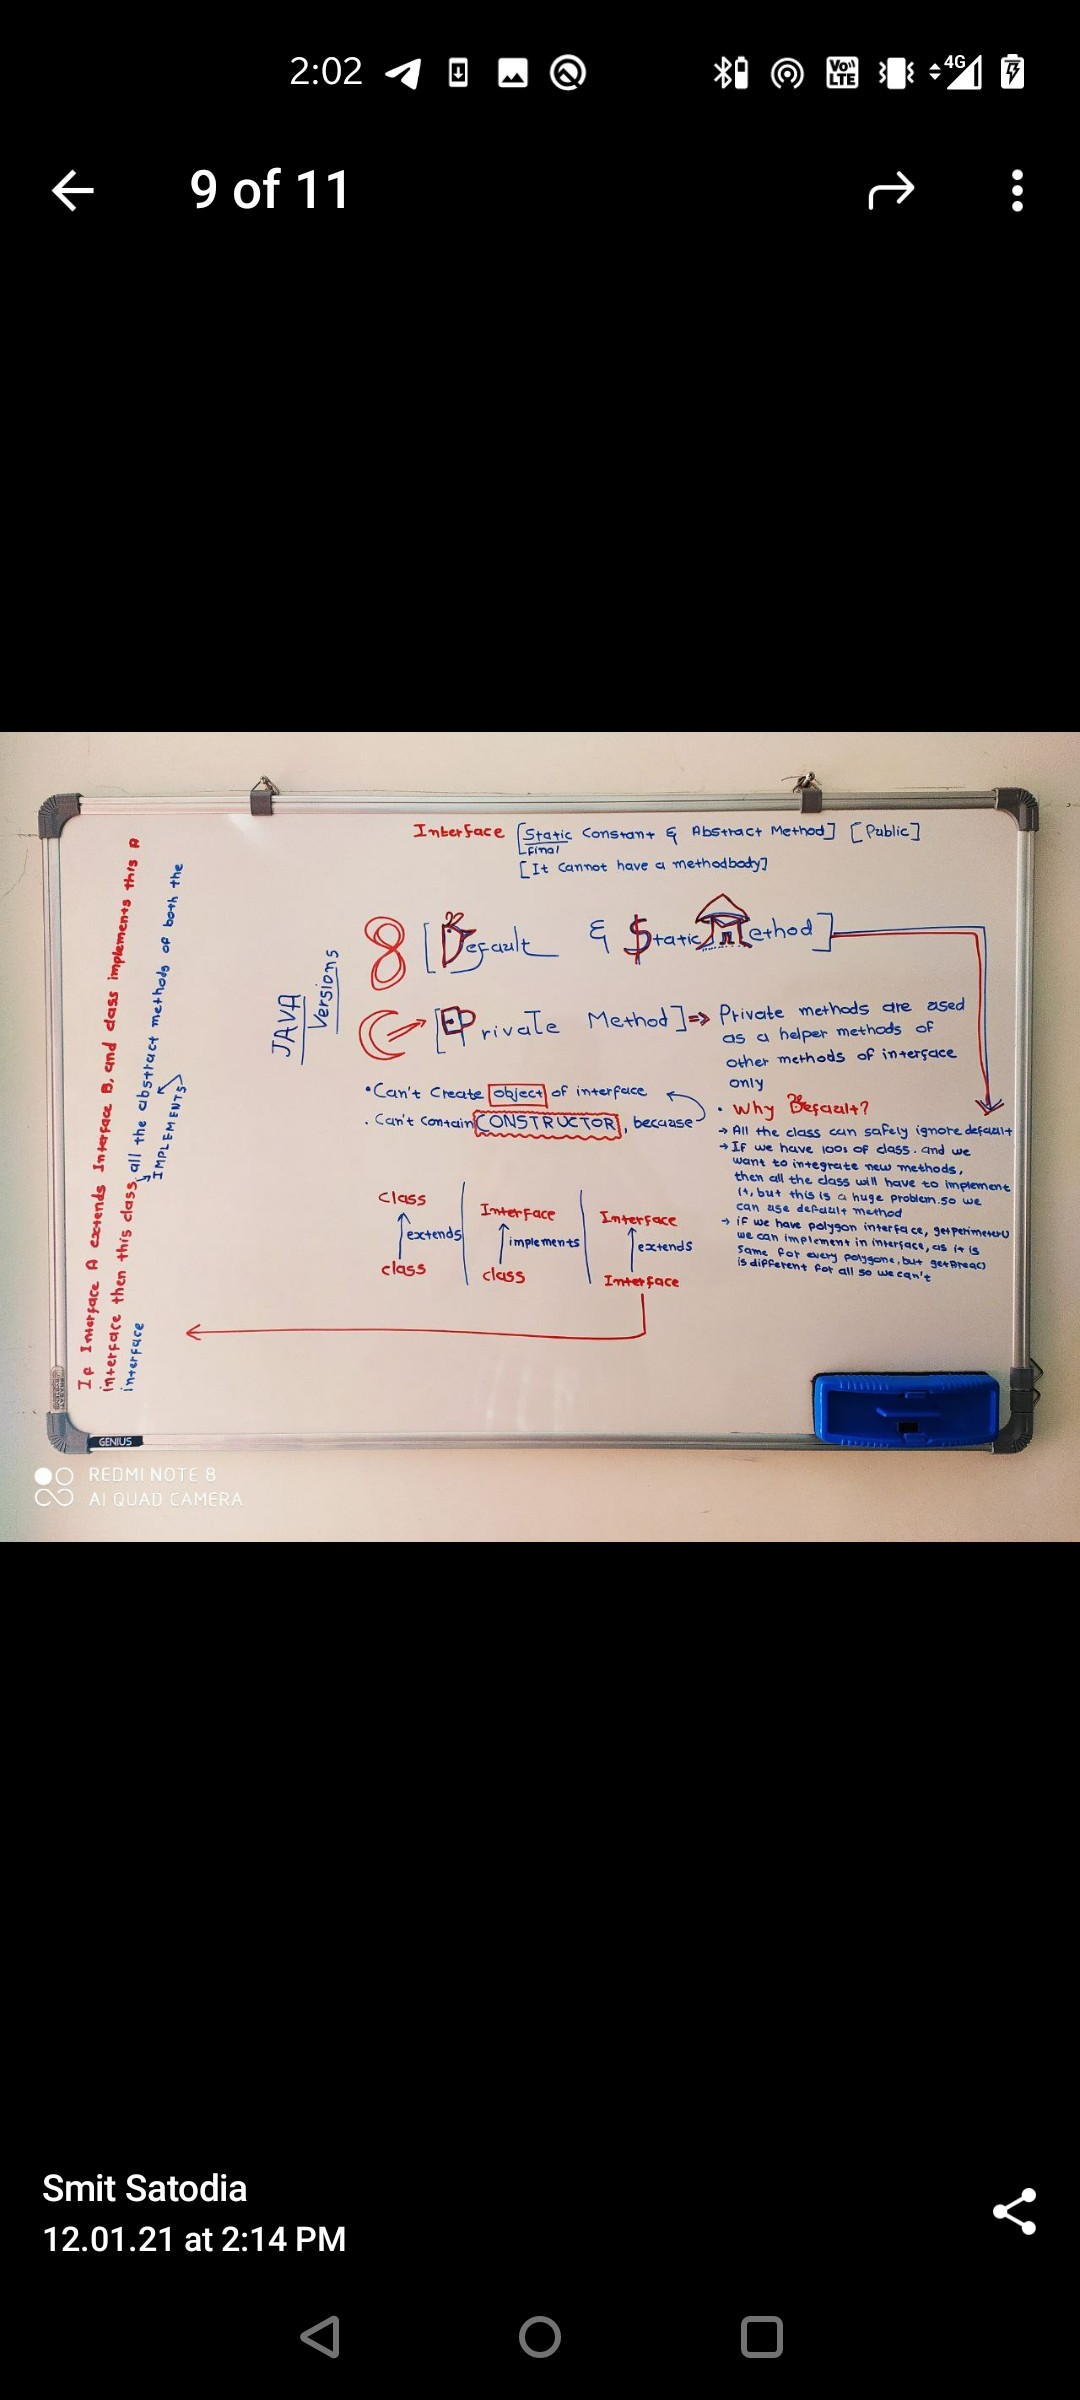 2:02
4G
Vo))
LTE
9 of 11
Interface [Static Constant & Abstract Method] [Public]
Final
[It cannot have a methodbody]
JAVA
Versions
8 [Default & Static Method]
[Private Method] => Private methods are used
as a helper methods of
other methods of interface
only
•Can't Create object of interface
. Can't contain CONSTRUCTOR, because
• Why Default?
→ All the class can safely ignore default
→ If we have 100s of class. and we
want to integrate new methods,
then all the class will have to implement
it, but this is a huge problem. so we
can use default method
→ if we have polygon interface, getperimeter()
we can implement in interface, as it is
same for every polygone, but getArea()
is different for all so we can't
class
extends
class
Interface
implements
class
Interface
extends
Interface
If Interface A extends Interface B, and class implements this A
interface then this class all the abstract methods of both the
IMPLEMENTS
interface
GENIUS
REDMI NOTE 8
AI QUAD CAMERA
Smit Satodia
12.01.21 at 2:14 PM